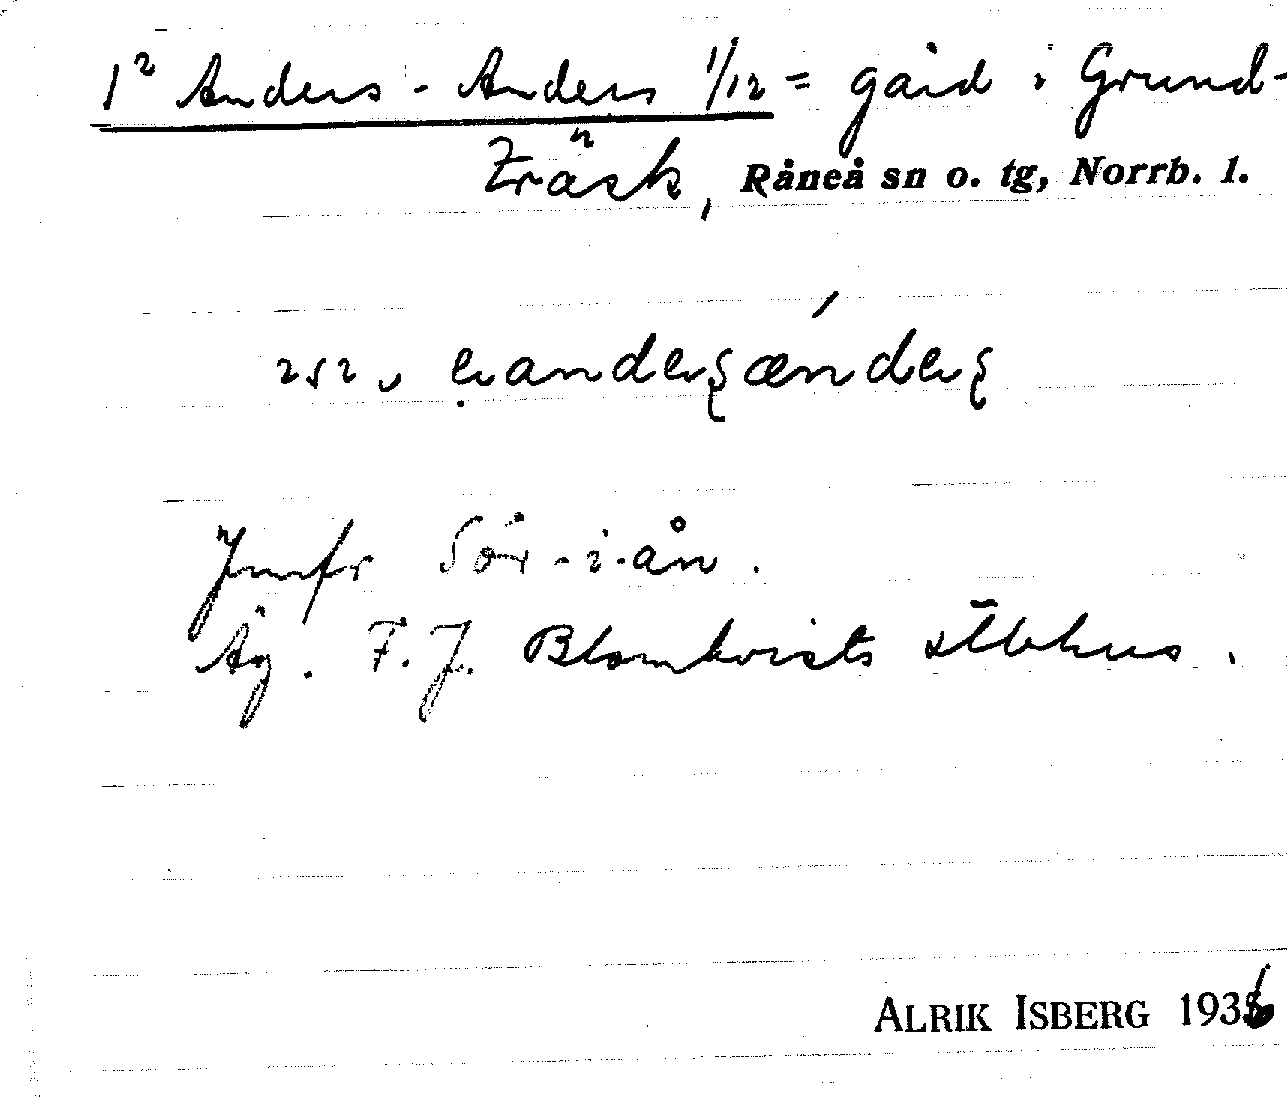 1² Anders-Anders 1/12 = gård i Grund-
träsk, Råneå sn o. tg, Norrb. l.
Jmfr Sör-i-ån.
Äg. F. J. Blomkvists stbhus.
ALRIK ISBERG 1936